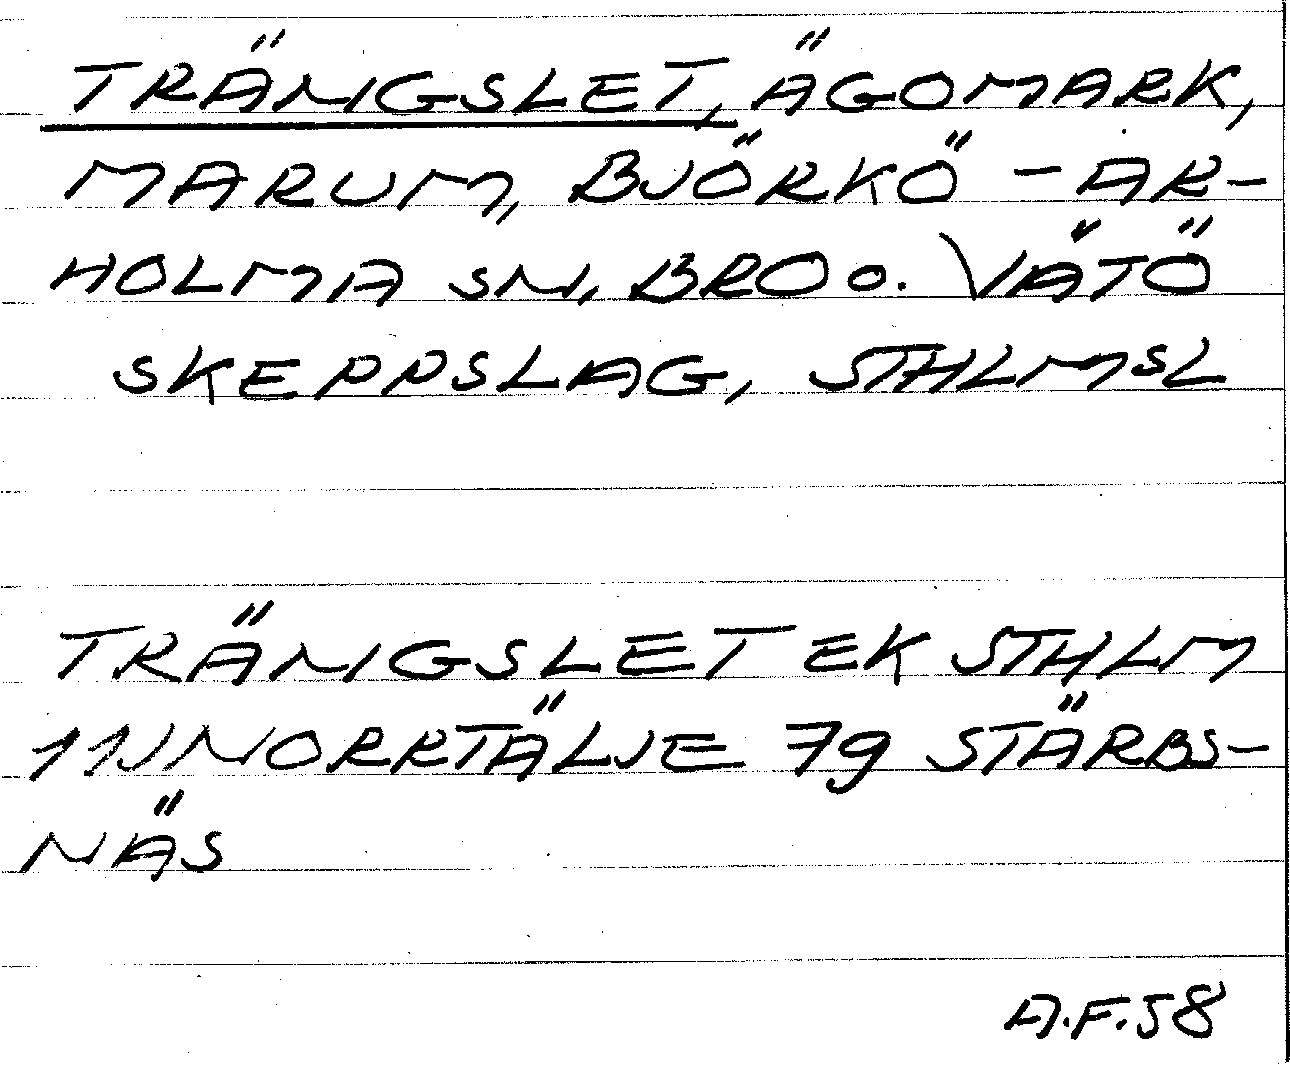 TRÄNGSLET, ÄGOMARK,
MARUM, BJÖRKÖ - AR-
HOLMA SN, BRO o. VÄTÖ
SKEPPSLAG, STHLMSL
TRÄNGSLET EK STHLM
11J NORRTÄLJE 79 STÄRBS-
NÄS
A.F. 58